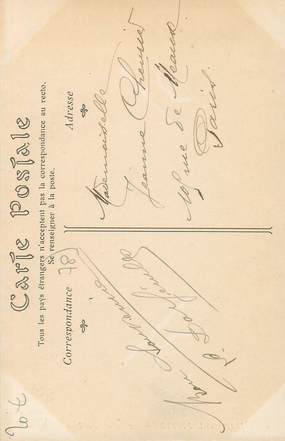 Carte Postale
Tous les pays étrangers n'acceptent pas la correspondance au recto.
Se renseigner à la poste.
Correspondance
Adresse
78
Mon
Souvenir
Mademoiselle
Jeanne
rue de Meaux
Paris
20 €